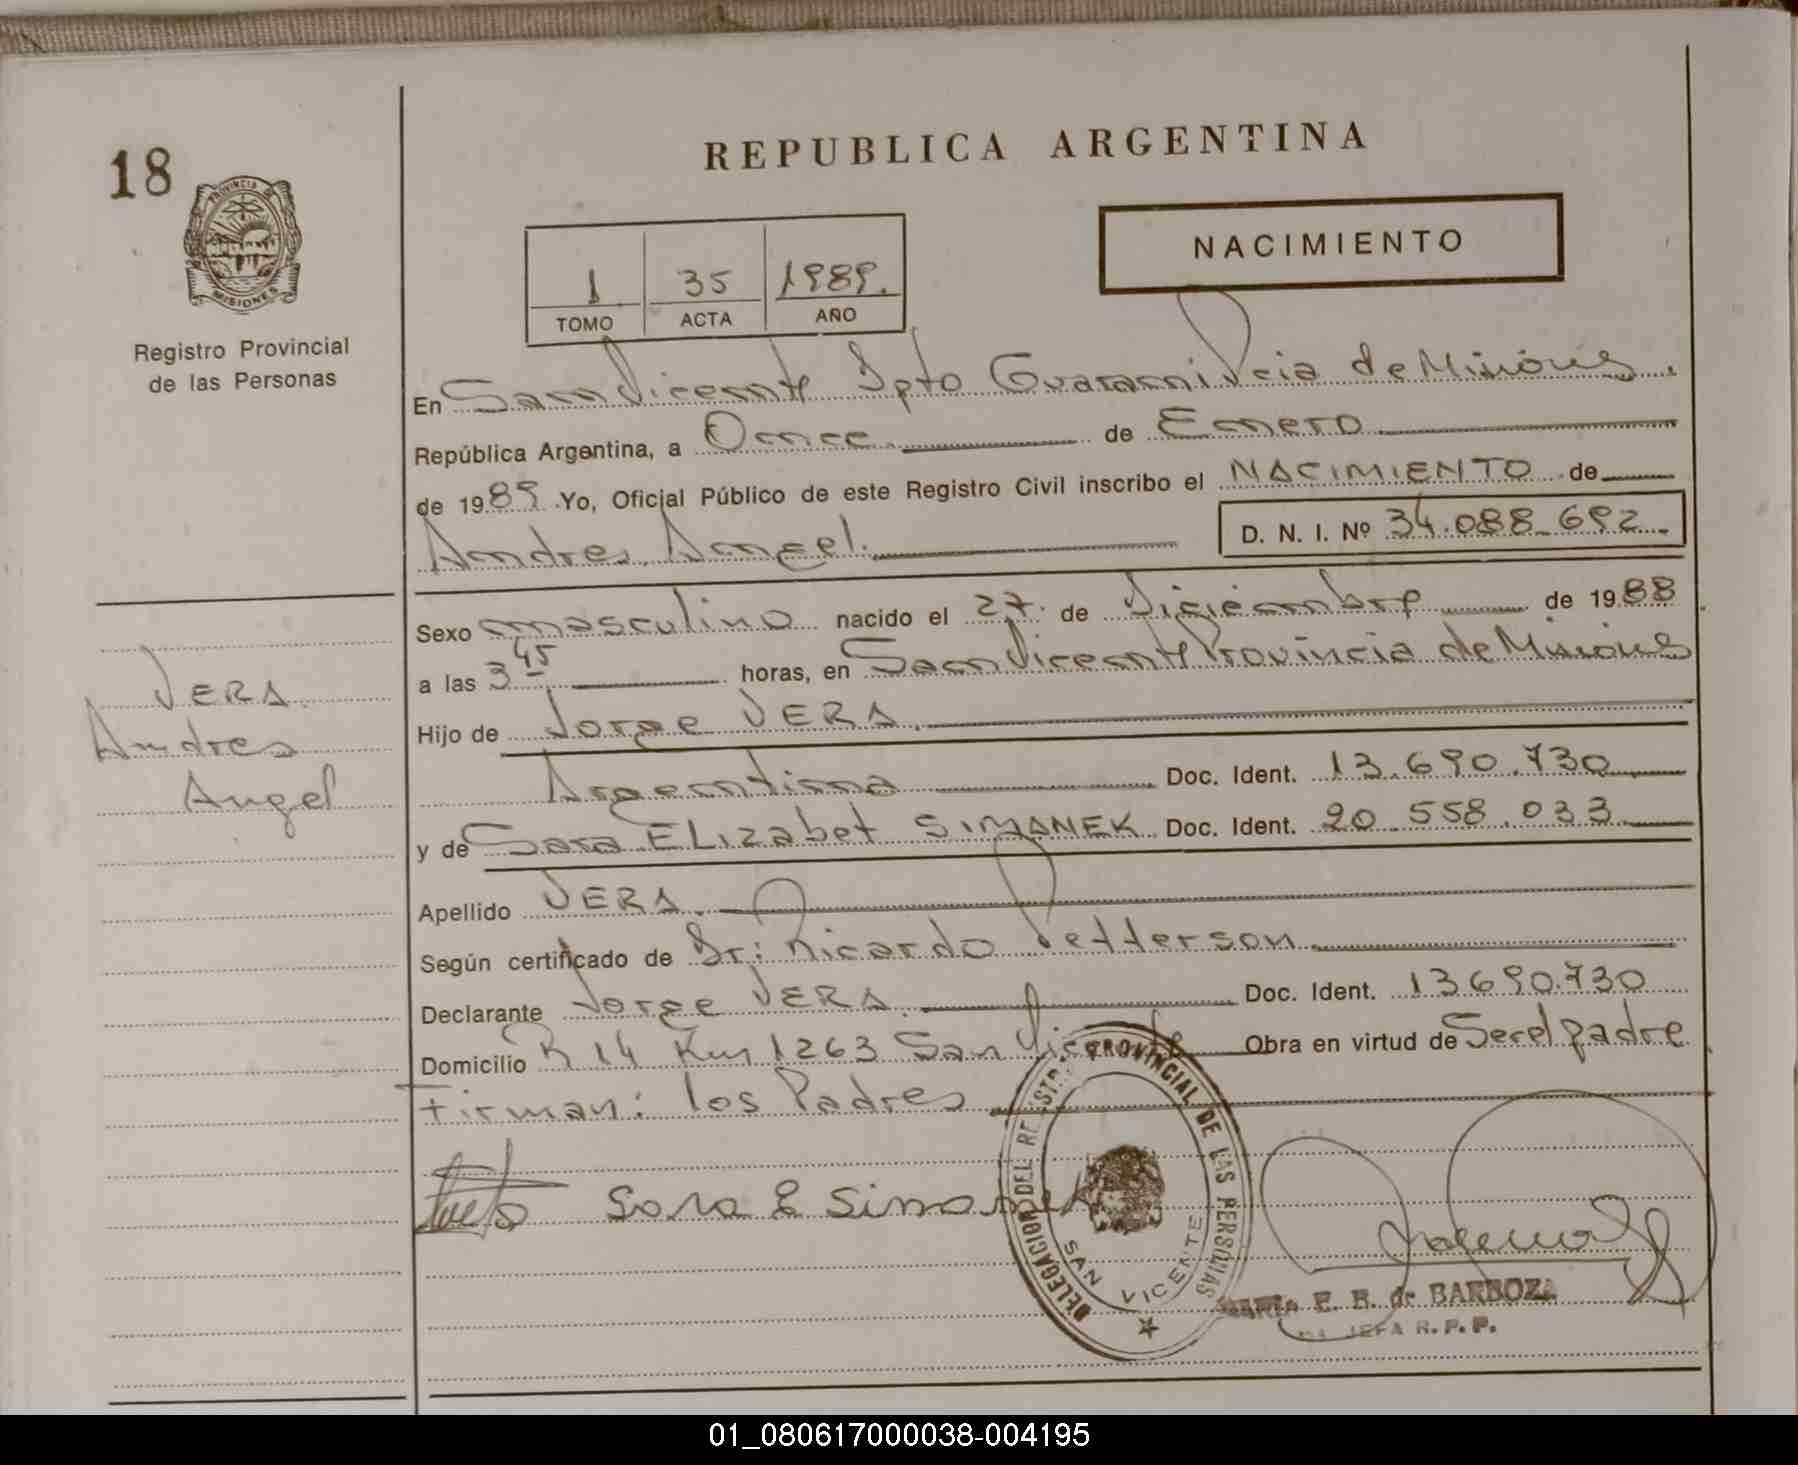 18
PROVINCIA DE
MISIONES
Registro Provincial
de las Personas
REPUBLICA ARGENTINA
NACIMIENTO
1 35 1989.
TOMO ACTA AÑO
En San Vicente Dpto Guarani Pcia de Misiones.
República Argentina, a Once de Enero
de 1989 Yo, Oficial Público de este Registro Civil inscribo el NACIMIENTO de
Andres Angel. D. N. I. Nº 34.088.692.
Sexo masculino nacido el 27. de Diciembre de 1988
a las 3 45 horas, en San Vicente Provincia de Misiones
Hijo de Jorge VERA.
Argentina Doc. Ident. 13.690.730
y de Sara ELizabet SIMANEK Doc. Ident. 20.558.033
Apellido VERA.
Según certificado de Dr: Ricardo Petterson
Declarante Jorge VERA. Doc. Ident. 13690.730
Domicilio R 14 Km 1263 San Vicente Obra en virtud de Ser el padre
Firman: los Padres
VERA.
Andres
Angel
Sara E Simanek
DELEGACION DEL REGISTRO PROVINCIAL DE LAS PERSONAS
SAN VICENTE
E. R. de BARBOZA
JEFA R.P.P.
01_080617000038-004195